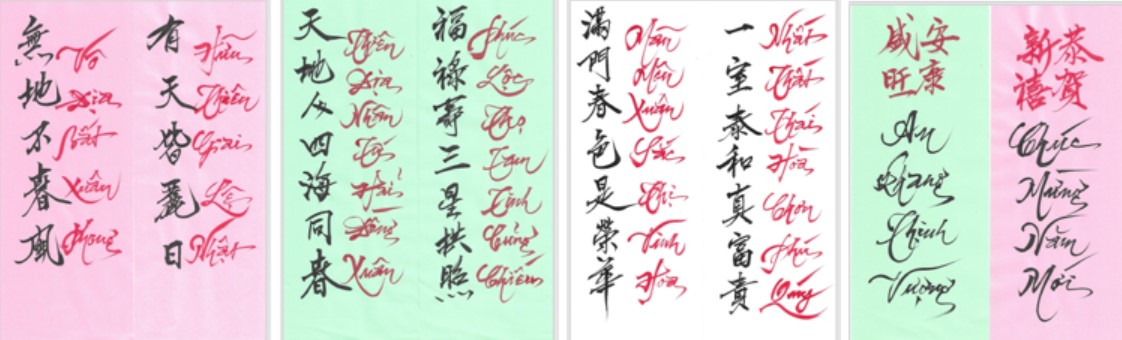 無地不春風
Vô Địa Bất Xuân Phong
有天皆麗日
Hữu Thiên Giai Lệ Nhật
天地人四海同春
Thiên Địa Nhân Tứ Hải Đồng Xuân
福祿壽三星拱照
Phúc Lộc Thọ Tam Tinh Củng Chiếu
滿門春色是榮華
Mãn Môn Xuân Sắc Thị Vinh Hoa
一室泰和真富貴
Nhất Thất Thái Hòa Chơn Phú Quý
安康
盛旺
An Khang Thịnh Vượng
恭賀
新禧
Chúc Mừng Năm Mới